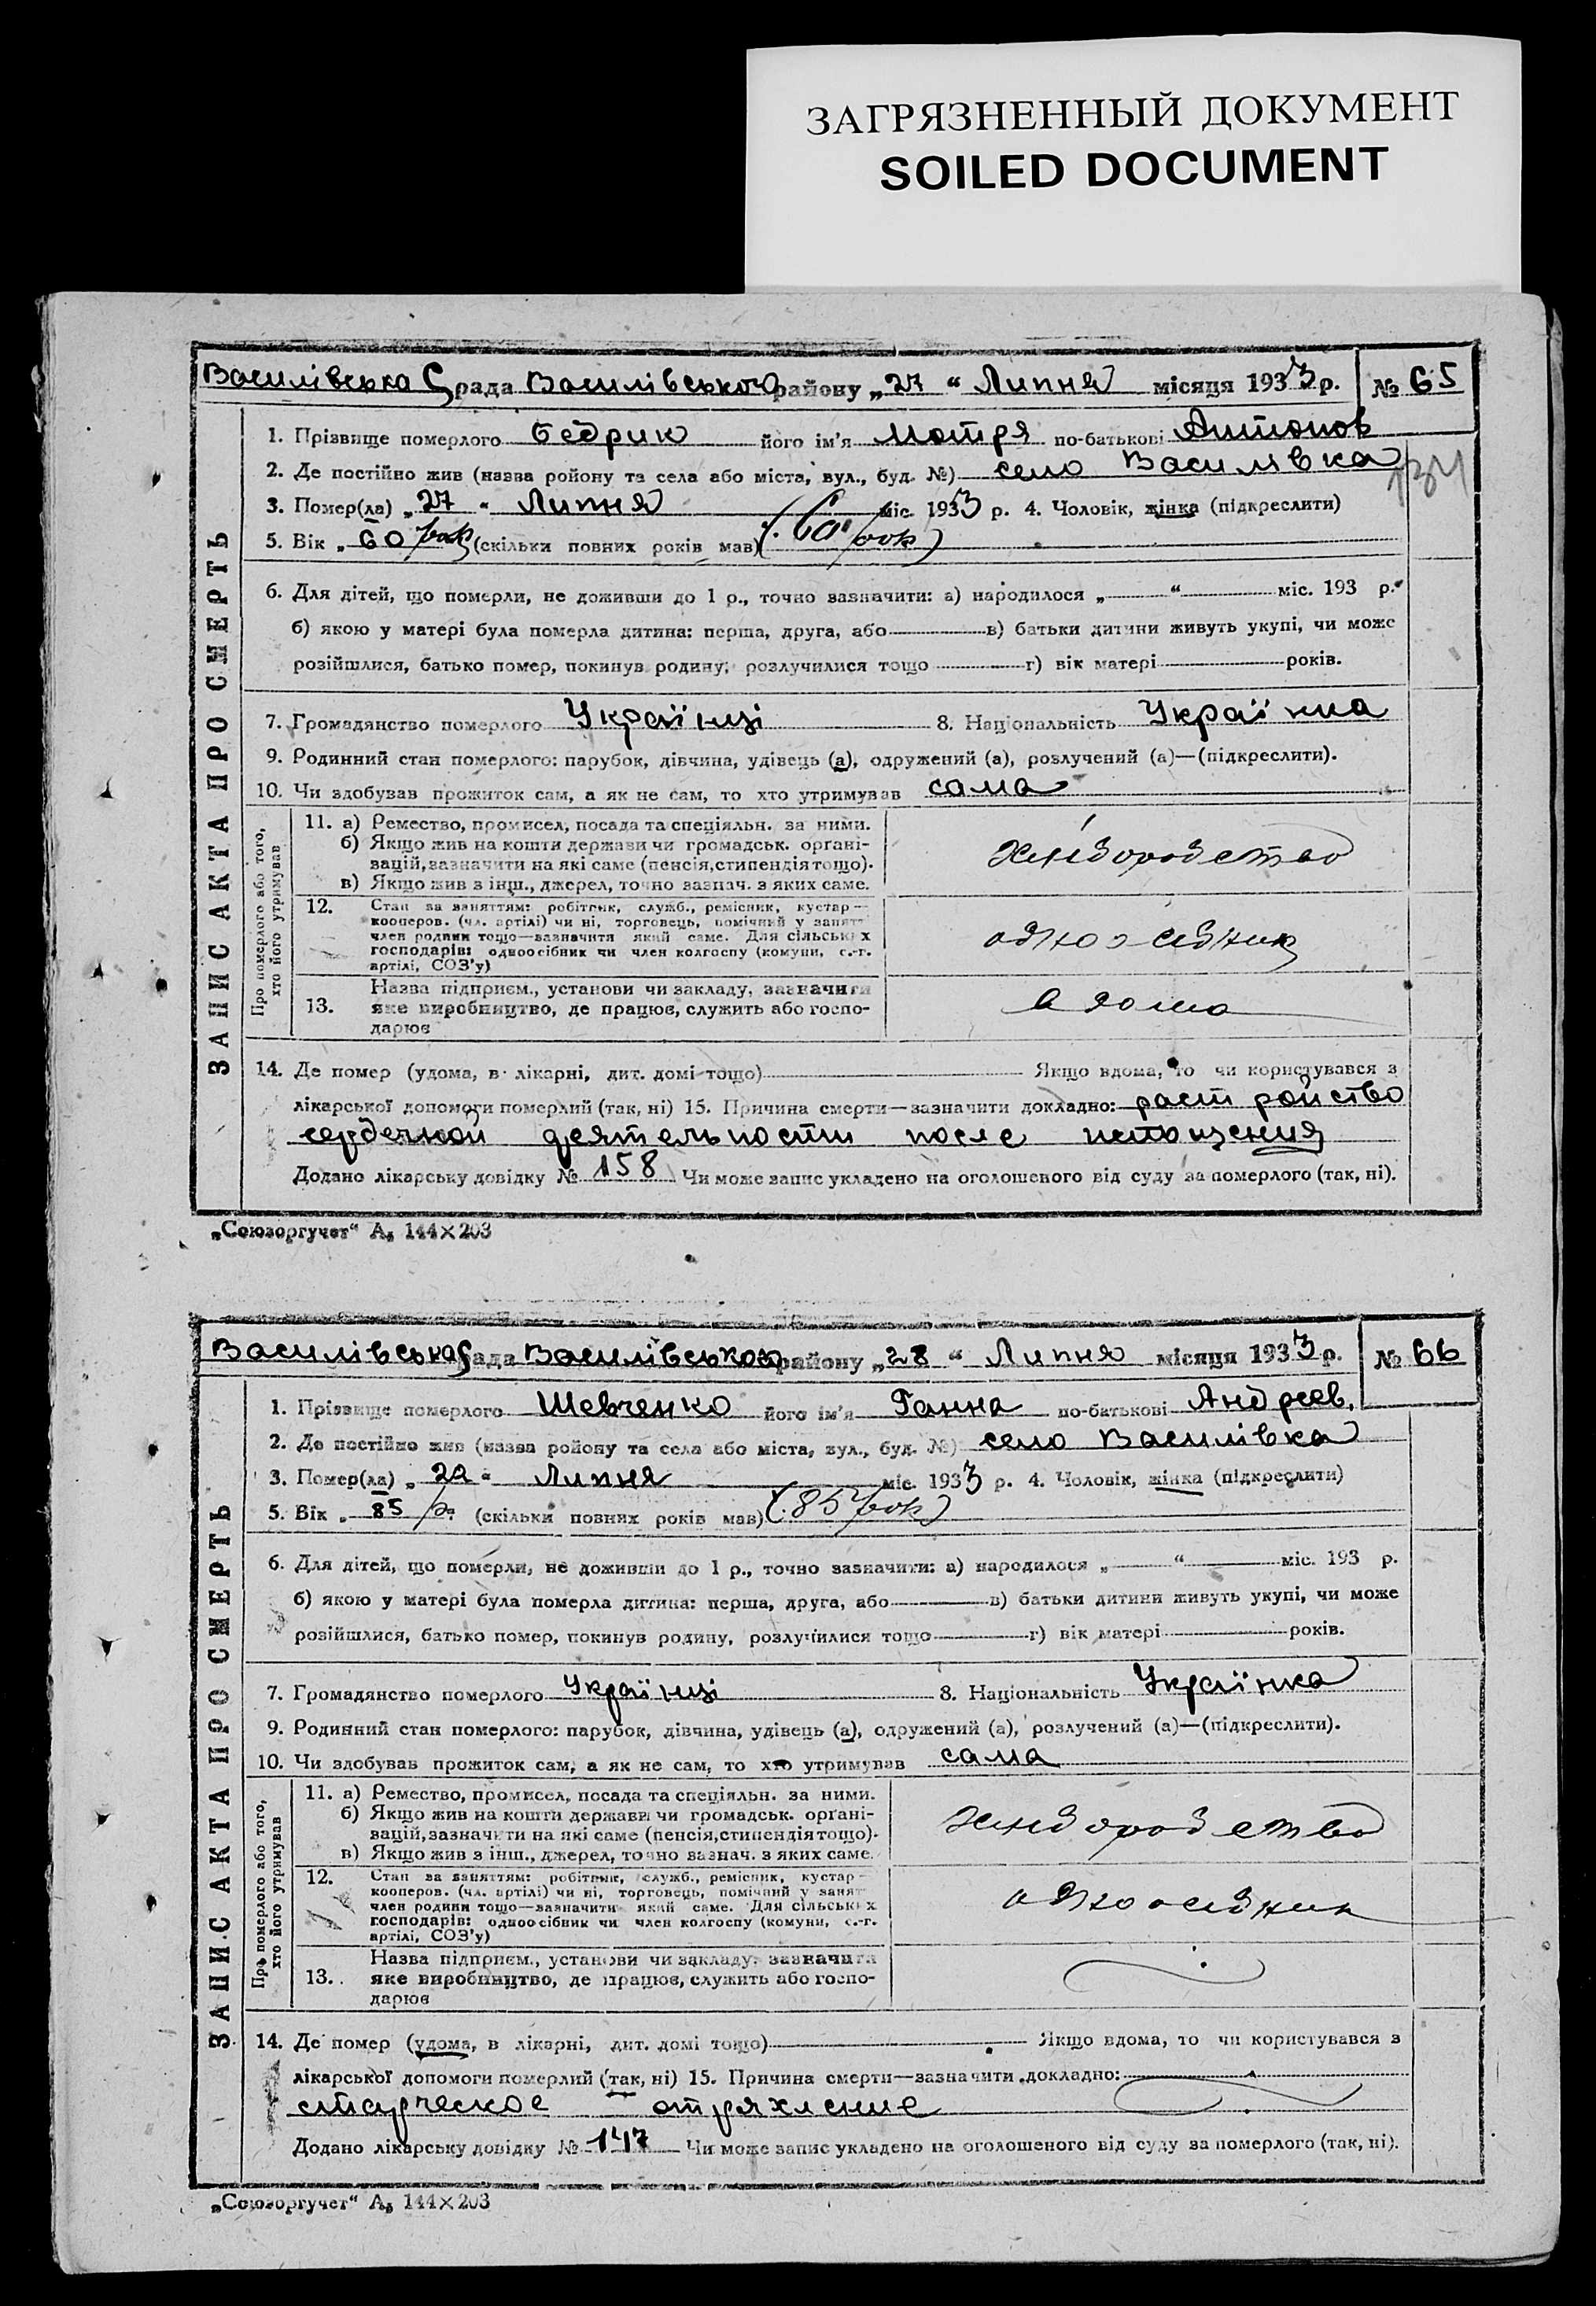 ЗАГРЯЗНЕННЫЙ ДОКУМЕНТ
SOILED DOCUMENT
Василівська С рада Василівського району „27“ Липня місяця 1933 р. № 65
ЗАПИС АКТА ПРО СМЕРТЬ
1. Прізвище померлого Бедрик його ім'я Мотря по-батькові Антонов
2. Де постійно жив (назва ройону та села або міста, вул., буд. №) село Василівка
134
3. Помер(ла) „27“ Липня міс. 1933 р. 4. Чоловік, жінка (підкреслити)
5. Вік „60 рок (скільки повних років мав) (60 рок)
6. Для дітей, що померли, не доживши до 1 р., точно зазначити: а) народилося „ “ міс. 193 р.
б) якою у матері була померла дитина: перша, друга, або в) батьки дитини живуть укупі, чи може
розійшлися, батько помер, покинув родину, розлучилися тощо г) вік матері років.
7. Громадянство померлого Україниці 8. Національність Україниа
9. Родинний стан померлого: парубок, дівчина, удівець (а), одружений (а), розлучений (а)—(підкреслити).
10. Чи здобував прожиток сам, а як не сам, то хто утримував сама
Про померлого або того,
хто його утримував
11. а) Ремество, промисел, посада та спеціяльн. за ними.
б) Якщо жив на кошти держави чи громадськ. орґані-
зацій, зазначити на які саме (пенсія, стипендія тощо).
в) Якщо жив з інш., джерел, точно зазнач. з яких саме.
хлібородство
12. Стан за заняттям: робітник, служб., ремісник, кустар—
кооперов. (чл. артілі) чи ні, торговець, помічний у занят
член родини тощо—зазначити який саме. Для сільських
господарів: одноосібник чи член колгоспу (комуни, с.-г.
артілі, СОЗ'у)
одноосібник
Назва підприєм., установи чи закладу, зазначити
13. яке виробництво, де працює, служить або госпо-
дарює
в дома
14. Де помер (удома, в лікарні, дит. домі тощо) Якщо вдома, то чи користувався з
лікарської допомоги померлий (так, ні) 15. Причина смерти—зазначити докладно: растройство
сердечной деятельности после истощения
Додано лікарську довідку № 158 Чи може запис укладено на оголошеного від суду за померлого (так, ні).
„Союзоргучет“ А5 144×203
Василівська С рада Василівського району „28“ Липня місяця 1933 р. № 66
ЗАПИС АКТА ПРО СМЕРТЬ
1. Прізвище померлого Шевченко його ім'я Ганна по-батькові Андреев.
2. Де постійно жив (назва ройону та села або міста, вул., буд. №) село Василівка
3. Помер(ла) „22“ Липня міс. 1933 р. 4. Чоловік, жінка (підкреслити)
5. Вік „85 р. (скільки повних років мав) (85 рок)
6. Для дітей, що померли, не доживши до 1 р., точно зазначити: а) народилося „ “ міс. 193 р.
б) якою у матері була померла дитина: перша, друга, або в) батьки дитини живуть укупі, чи може
розійшлися, батько помер, покинув родину, розлучилися тощо г) вік матері років.
7. Громадянство померлого Україниці 8. Національність Українка
9. Родинний стан померлого: парубок, дівчина, удівець (а), одружений (а), розлучений (а)—(підкреслити).
10. Чи здобував прожиток сам, а як не сам, то хто утримував сама
Про померлого або того,
хто його утримував
11. а) Ремество, промисел, посада та спеціяльн. за ними.
б) Якщо жив на кошти держави чи громадськ. орґані-
зацій, зазначити на які саме (пенсія, стипендія тощо).
в) Якщо жив з інш., джерел, точно зазнач. з яких саме.
хлібородство
12. Стан за заняттям: робітник, служб., ремісник, кустар—
кооперов. (чл. артілі) чи ні, торговець, помічний у занят
член родини тощо—зазначити який саме. Для сільських
господарів: одноосібник чи член колгоспу (комуни, с.-г.
артілі, СОЗ'у)
одноосібник
Назва підприєм., установи чи закладу, зазначити
13. яке виробництво, де працює, служить або госпо-
дарює
14. Де помер (удома, в лікарні, дит. домі тощо) Якщо вдома, то чи користувався з
лікарської допомоги померлий (так, ні) 15. Причина смерти—зазначити докладно:
старческое отряхление
Додано лікарську довідку № 147 Чи може запис укладено на оголошеного від суду за померлого (так, ні).
„Союзоргучет“ А5 144×203